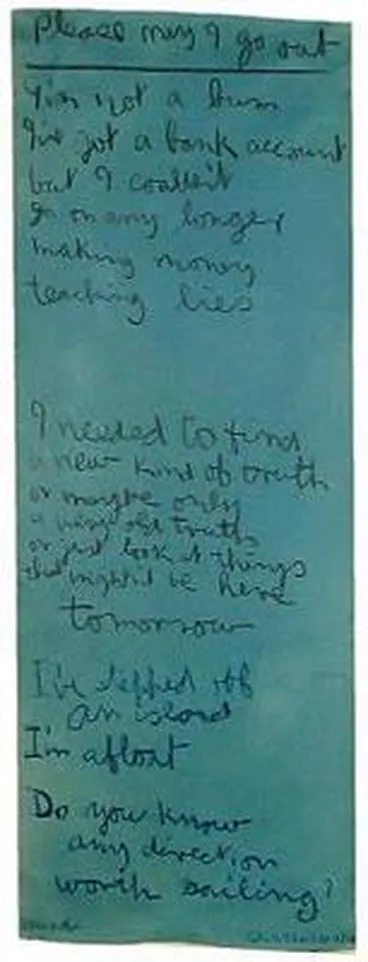 Please may I go out
I'm not a bum
I've got a bank account
but I couldn't
go on any longer
making money
teaching lies
I needed to find
a new kind of truth
or maybe only
a very old truth
or just look at things
that might be here
tomorrow
I've stepped off
an island
I'm afloat
Do you know
any direction
worth sailing?